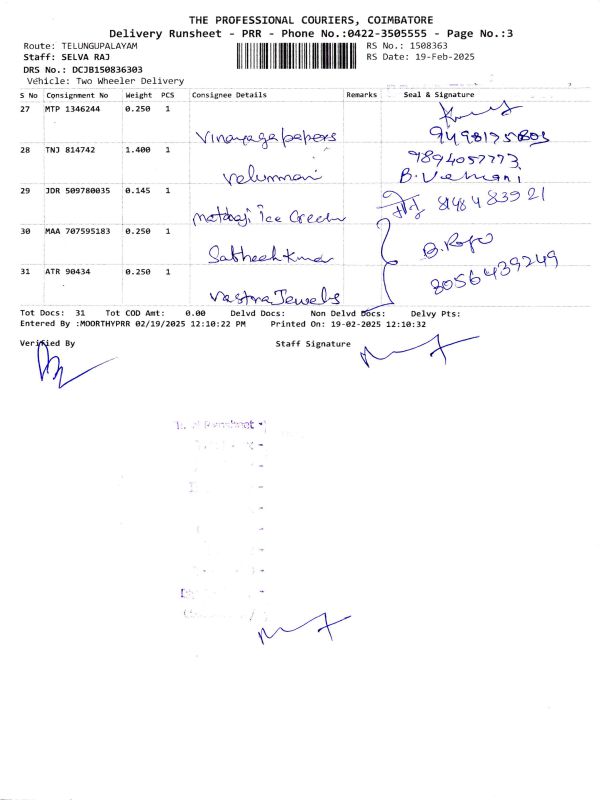 THE PROFESSIONAL COURIERS, COIMBATORE
Delivery Runsheet - PRR - Phone No.:0422-3505555 - Page No.:3
Route: TELUNGUPALAYAM
RS No.: 1508363
Staff: SELVA RAJ
RS Date: 19-Feb-2025
DRS No.: DCJB150836303
Vehicle: Two Wheeler Delivery
S No Consignment No Weight PCS Consignee Details Remarks Seal & Signature
27 MTP 1346244 0.250 1
Vinayaga papers
28 TNJ 814742 1.400 1
9894057773
Velumani
29 JDR 509780035 0.145 1
8148483921
Mataji Ice Cream
30 MAA 707595183 0.250 1
Satheeshkumar
B. Raja
31 ATR 90434 0.250 1
8056439249
Vastra Jewels
Tot Docs: 31 Tot COD Amt: 0.00 Delvd Docs: Non Delvd Docs: Delvy Pts:
Entered By :MOORTHYPRR 02/19/2025 12:10:22 PM Printed On: 19-02-2025 12:10:32
Verified By
Staff Signature